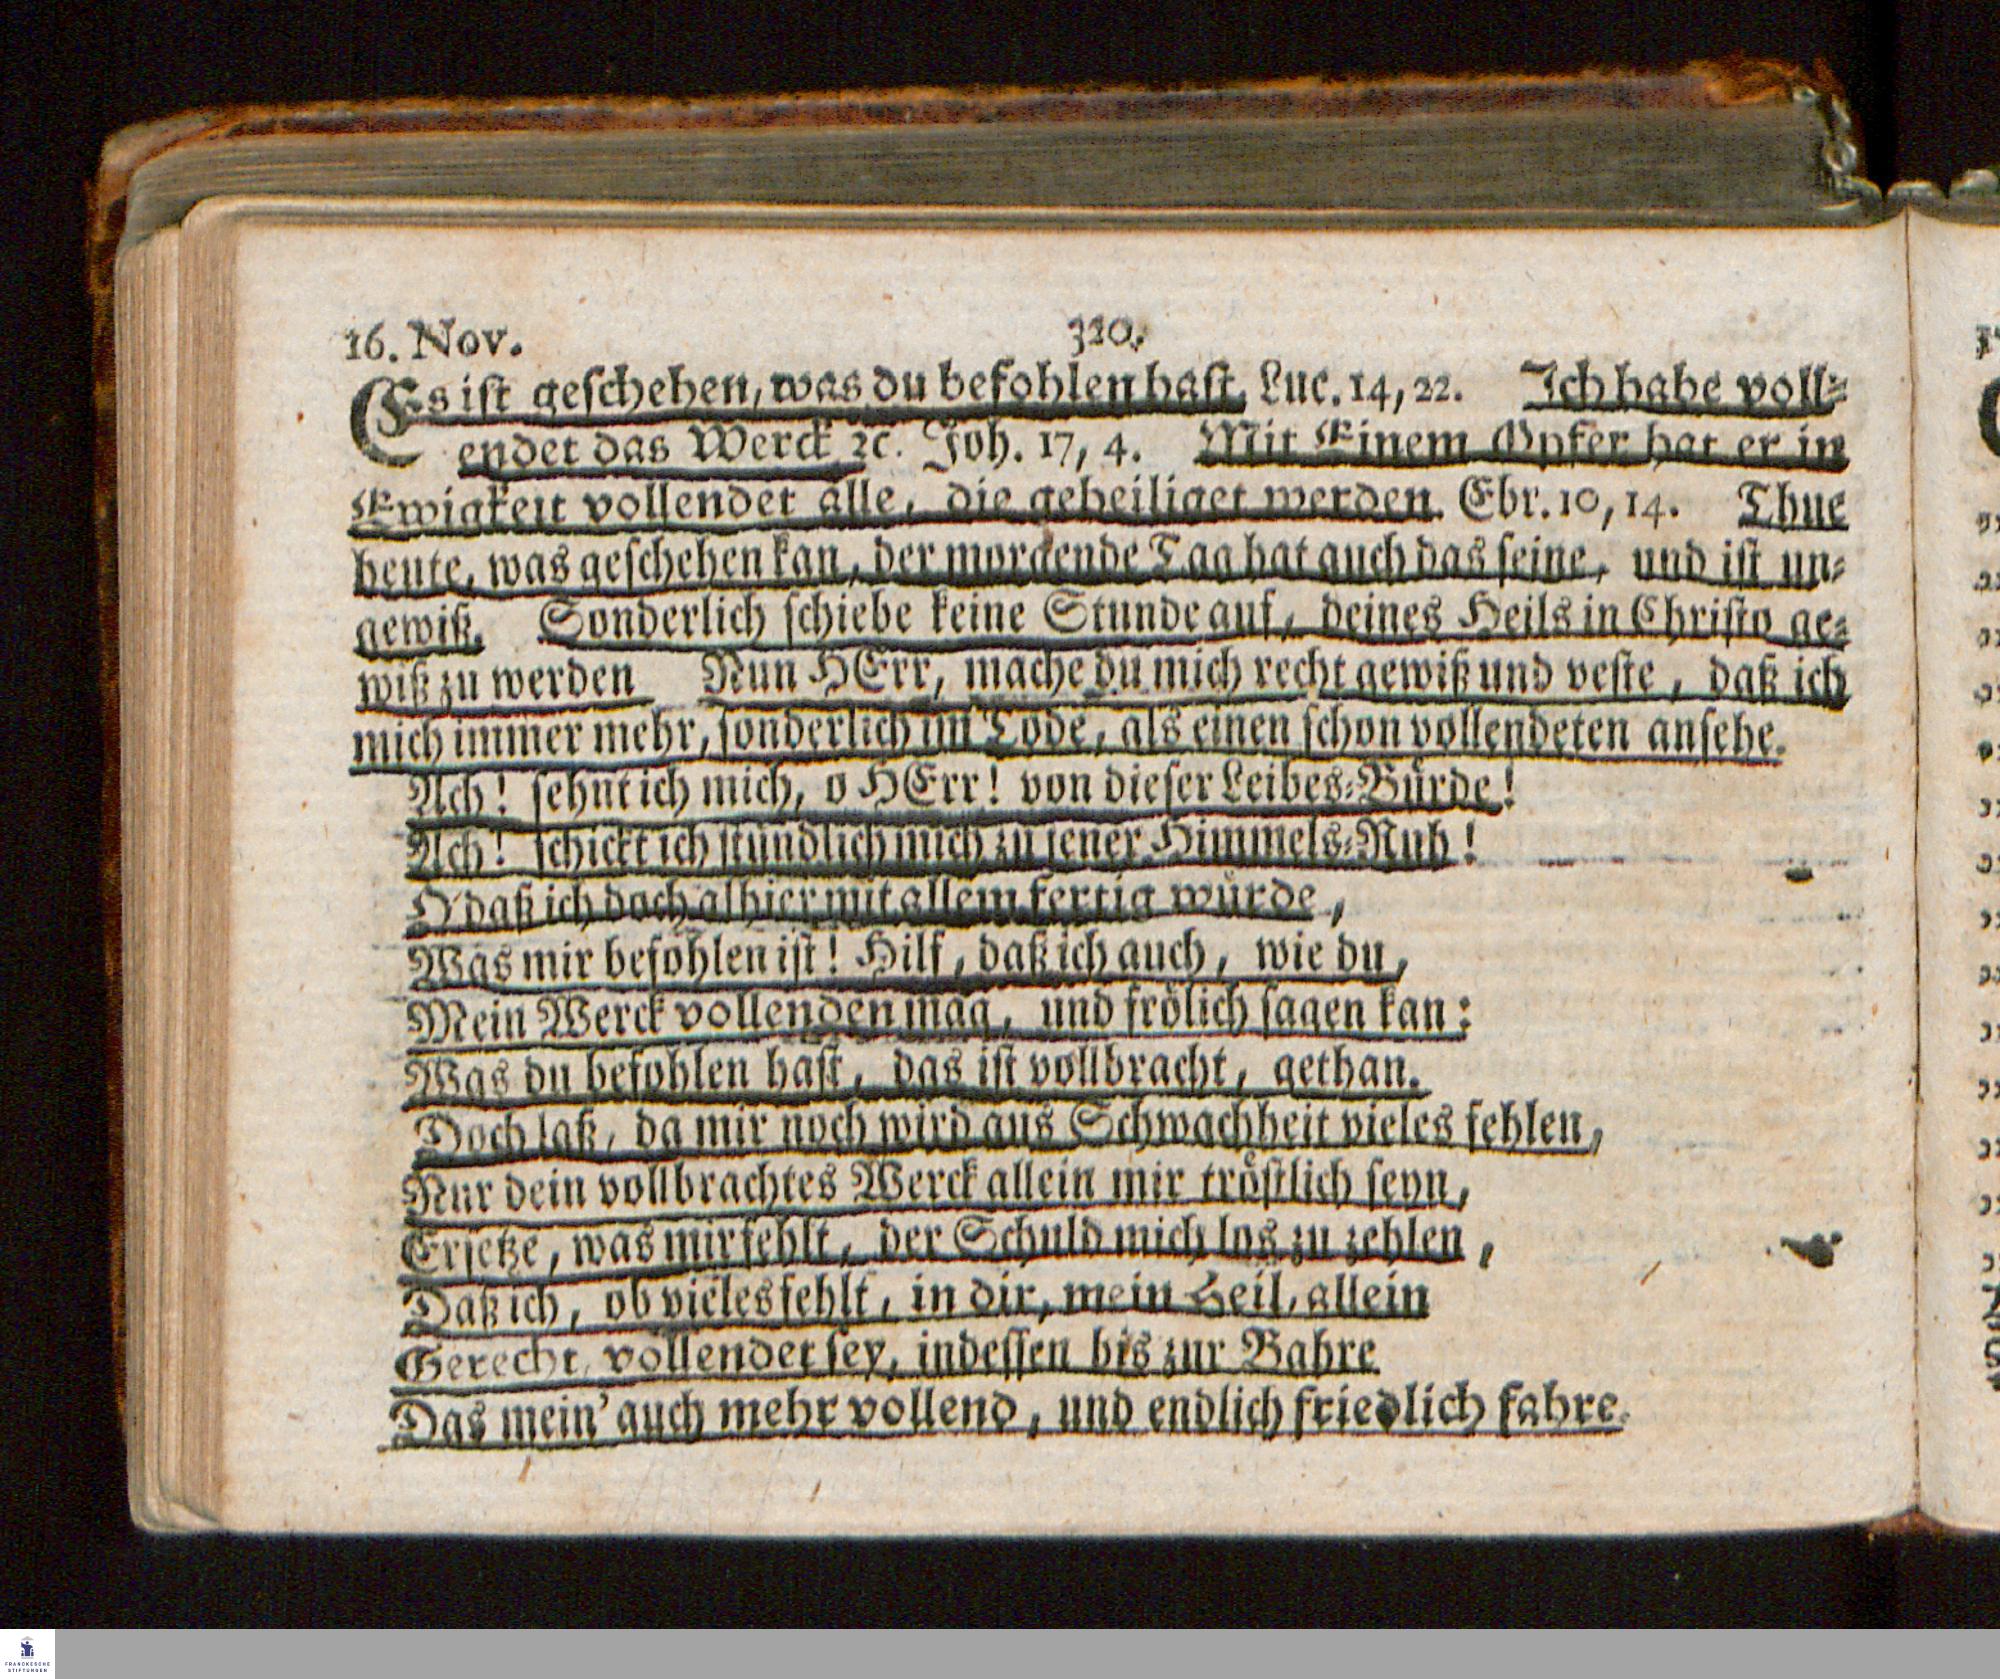 16. Nov. 320.
Es ist geschehen, was du befohlen hast. Luc. 14, 22. Ich habe voll-
endet das Werck ꝛc. Joh. 17, 4. Mit Einem Opfer hat er in
Ewigkeit vollendet alle, die geheiliget werden. Ebr. 10, 14. Thue
heute, was geschehen kan, der morgende Tag hat auch das seine, und ist un-
gewiß. Sonderlich schiebe keine Stunde auf, deines Heils in Christo ge-
wiß zu werden Nun HErr, mache du mich recht gewiß und veste, daß ich
mich immer mehr, sonderlich im Tode, als einen schon vollendeten ansehe.
Ach! sehnt ich mich, o HErr! von dieser Leibes-Bürde!
Ach! schickt ich stündlich mich zu jener Himmels-Ruh!
O daß ich doch alhier mit allem fertig würde,
Was mir befohlen ist! Hilf, daß ich auch, wie du,
Mein Werck vollenden mag, und frölich sagen kan:
Was du befohlen hast, das ist vollbracht, gethan.
Doch laß, da mir noch wird aus Schwachheit vieles fehlen,
Nur dein vollbrachtes Werck allein mir tröstlich seyn,
Ersetze, was mir fehlt, der Schuld mich los zu zehlen,
Daß ich, ob vieles fehlt, in dir, mein Heil, allein
Gerecht, vollendet sey, indessen bis zur Bahre
Das mein' auch mehr vollend, und endlich friedlich fahre.
FRANCKESCHE
STIFTUNGEN